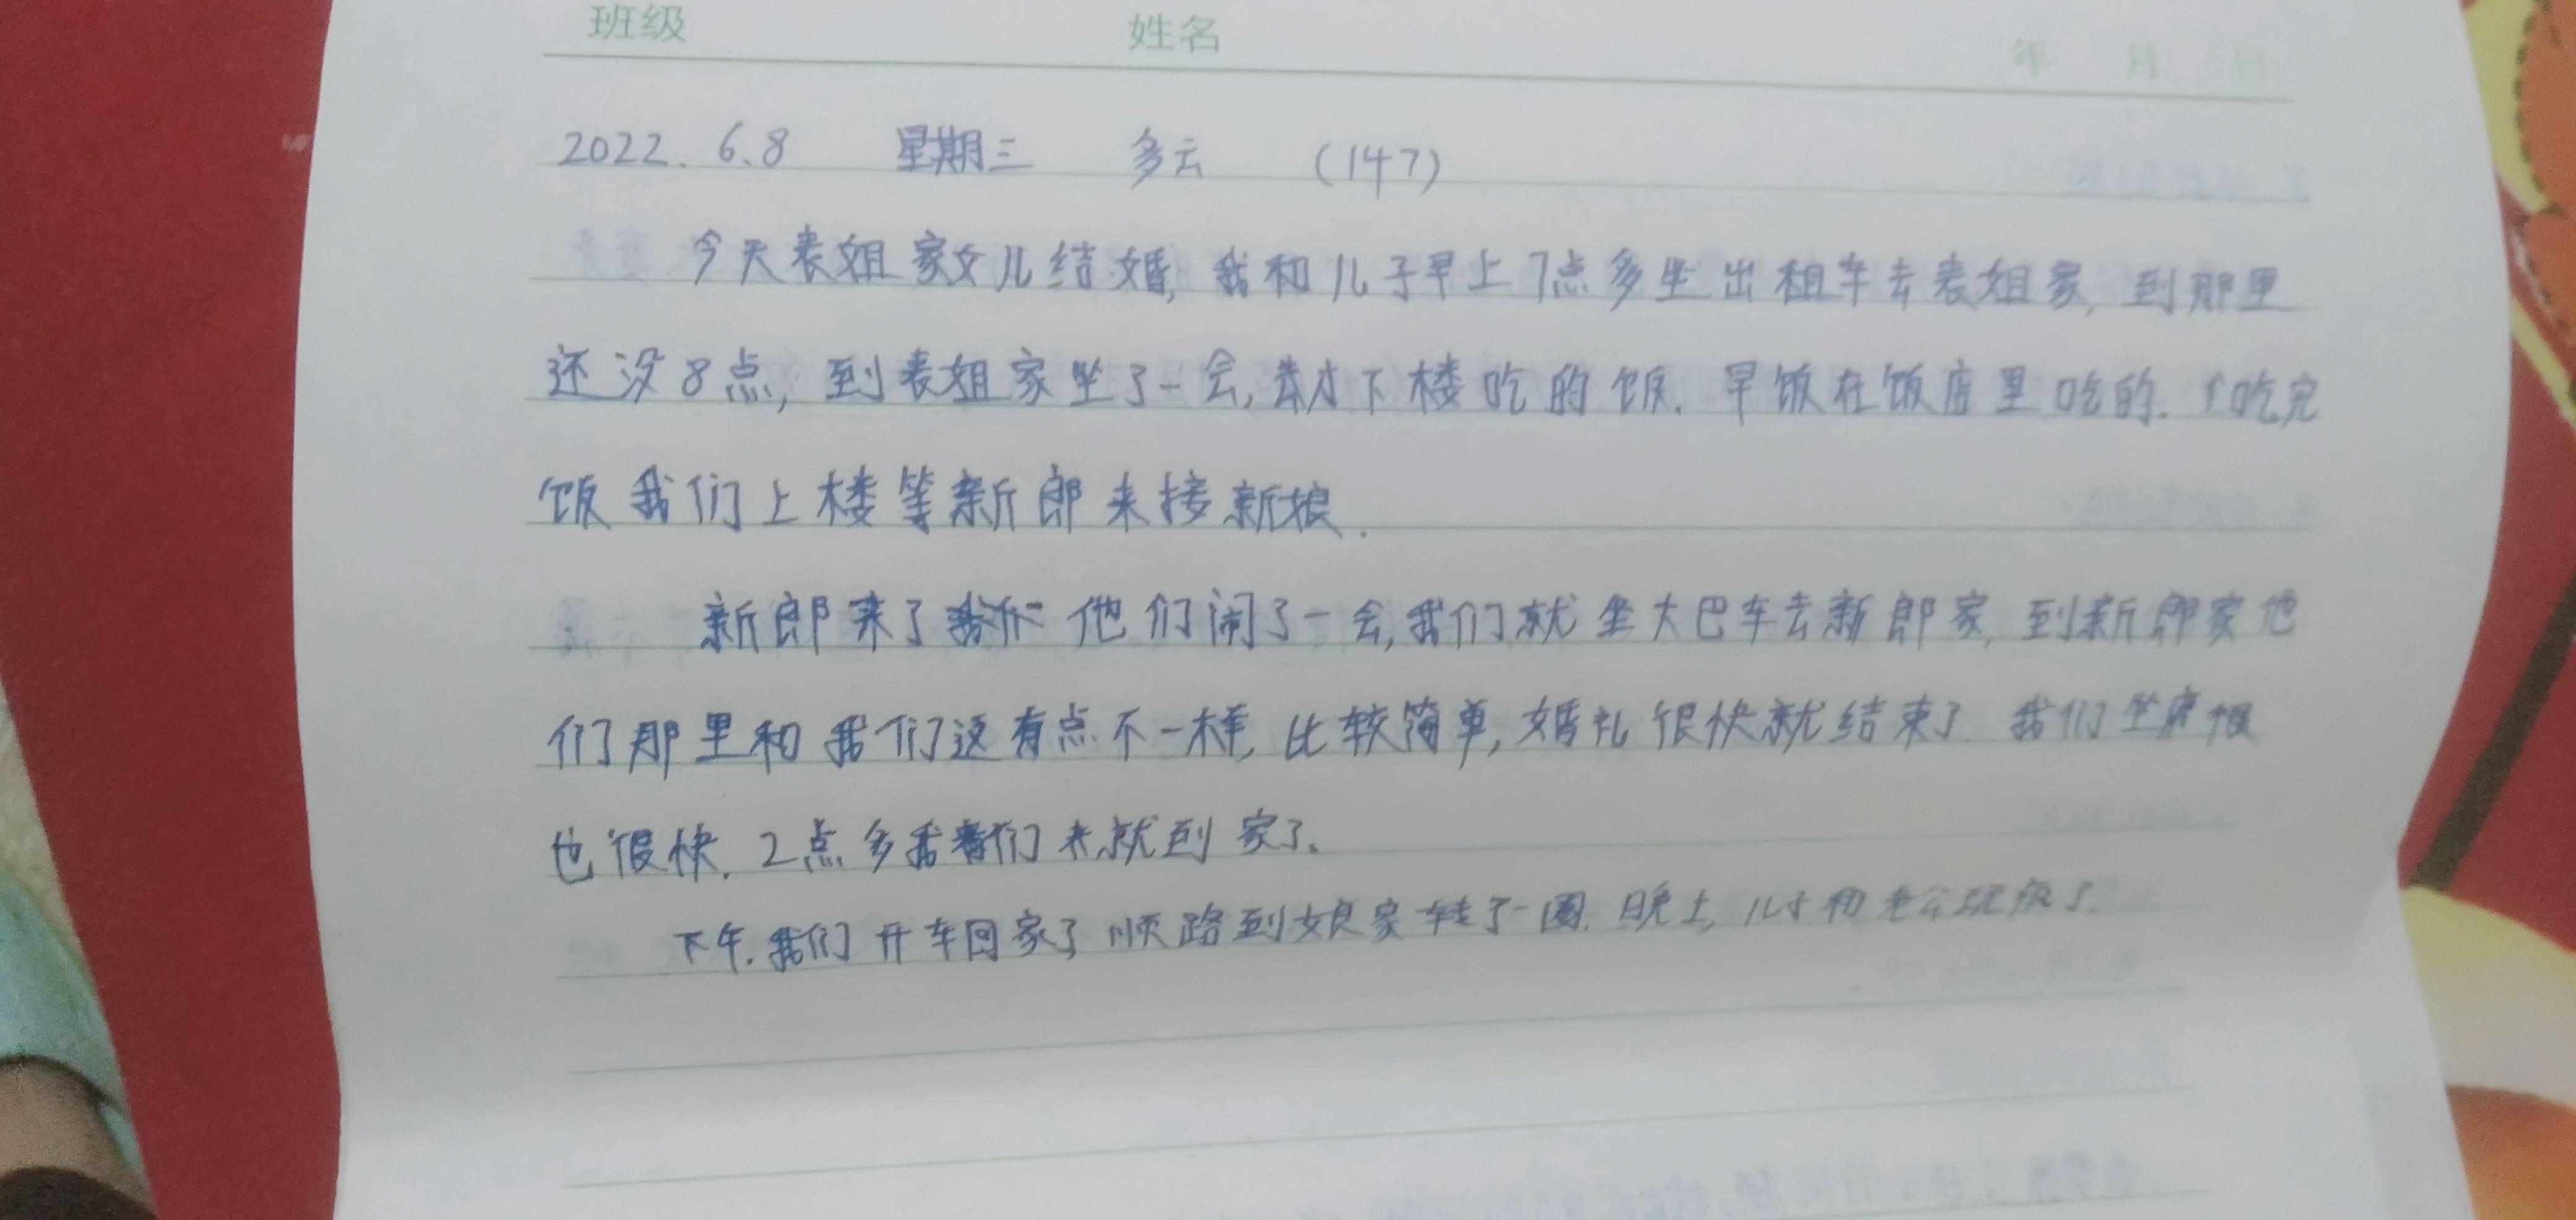 班级 姓名 年 月 日
2022.6.8 星期三 多云 (147)
今天表姐家女儿结婚,我和儿子早上7点多坐出租车去表姐家,到那里
还没8点,到表姐家坐了一会,才下楼吃的饭.早饭在饭店里吃的.吃完
饭我们上楼等新郎来接新娘.
新郎来了 他们闹了一会,我们就坐大巴车去新郎家,到新郎家他
们那里和我们这有点不一样,比较简单,婚礼很快就结束了 我们坐席
也很快.2点多我们就到家了.
下午.我们开车回家了顺路到娘家转了一圈.晚上,儿子和老公玩疯了.